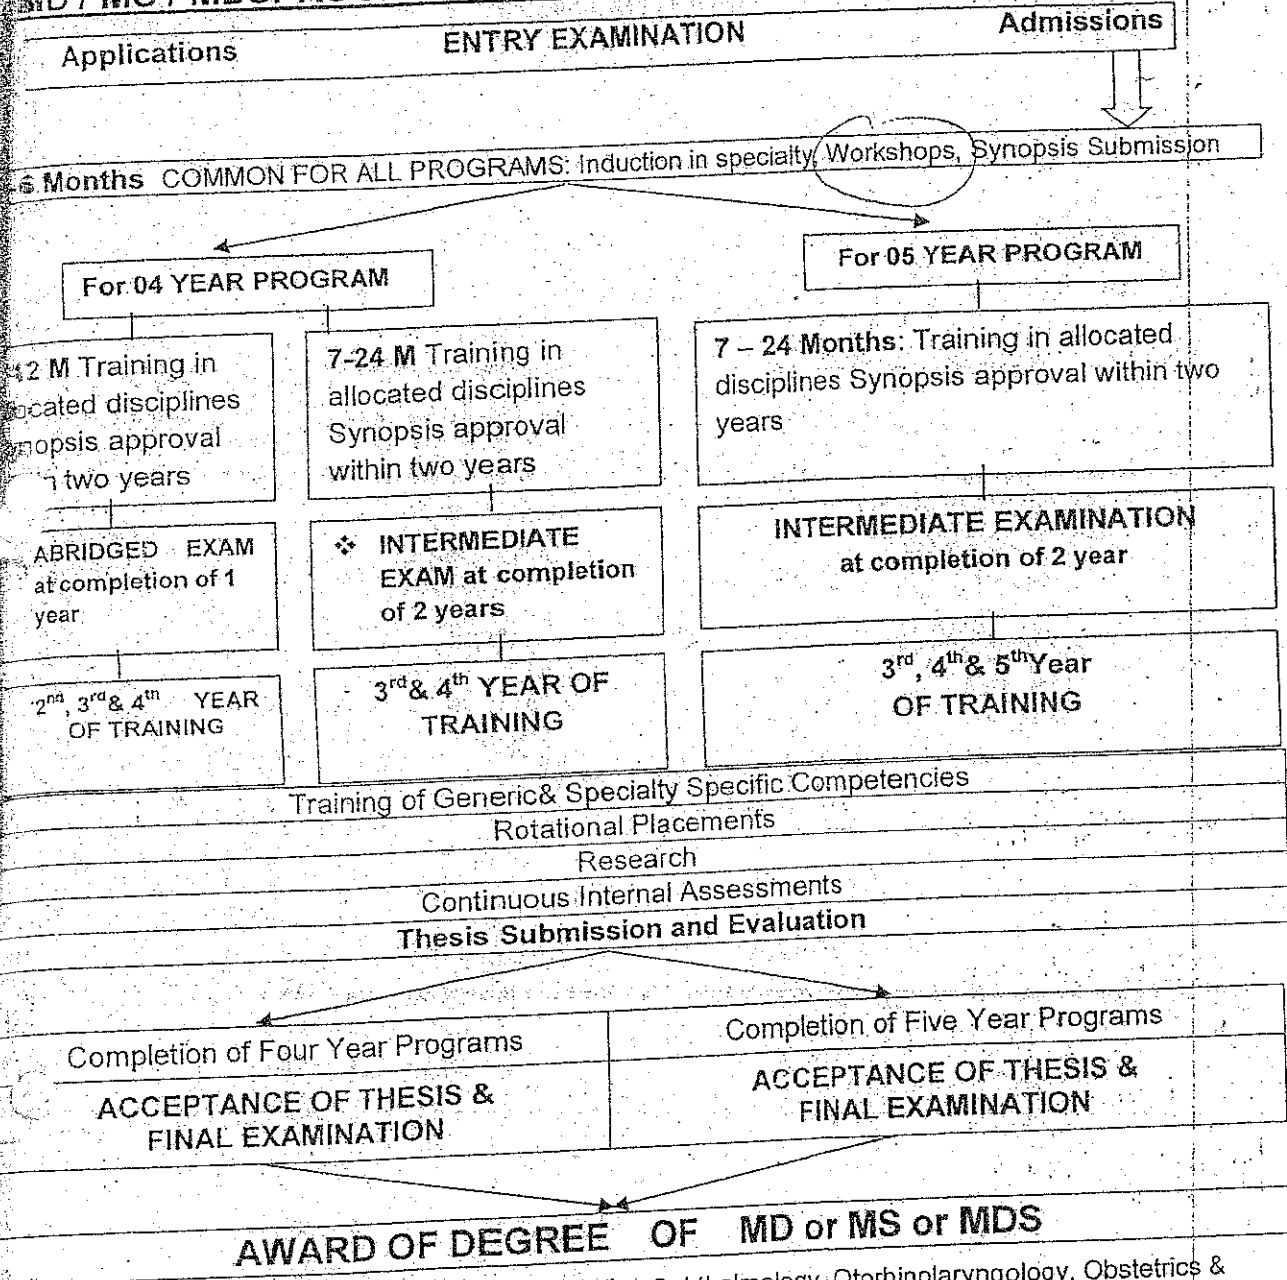 Applications ENTRY EXAMINATION Admissions
Months COMMON FOR ALL PROGRAMS: Induction in specialty, Workshops, Synopsis Submission
For 04 YEAR PROGRAM
For 05 YEAR PROGRAM
M Training in
disciplines
approval
two years
7-24 M Training in
allocated disciplines
Synopsis approval
within two years
7 – 24 Months: Training in allocated
disciplines Synopsis approval within two
years
ABRIDGED EXAM
at completion of 1
year
❖ INTERMEDIATE
EXAM at completion
of 2 years
INTERMEDIATE EXAMINATION
at completion of 2 year
2nd, 3rd& 4th YEAR
OF TRAINING
3rd& 4th YEAR OF
TRAINING
3rd, 4th& 5thYear
OF TRAINING
Training of Generic& Specialty Specific Competencies
Rotational Placements
Research
Continuous Internal Assessments
Thesis Submission and Evaluation
Completion of Four Year Programs
ACCEPTANCE OF THESIS &
FINAL EXAMINATION
Completion of Five Year Programs
ACCEPTANCE OF THESIS &
FINAL EXAMINATION
AWARD OF DEGREE OF MD or MS or MDS
Otorhinolaryngology, Obstetrics &